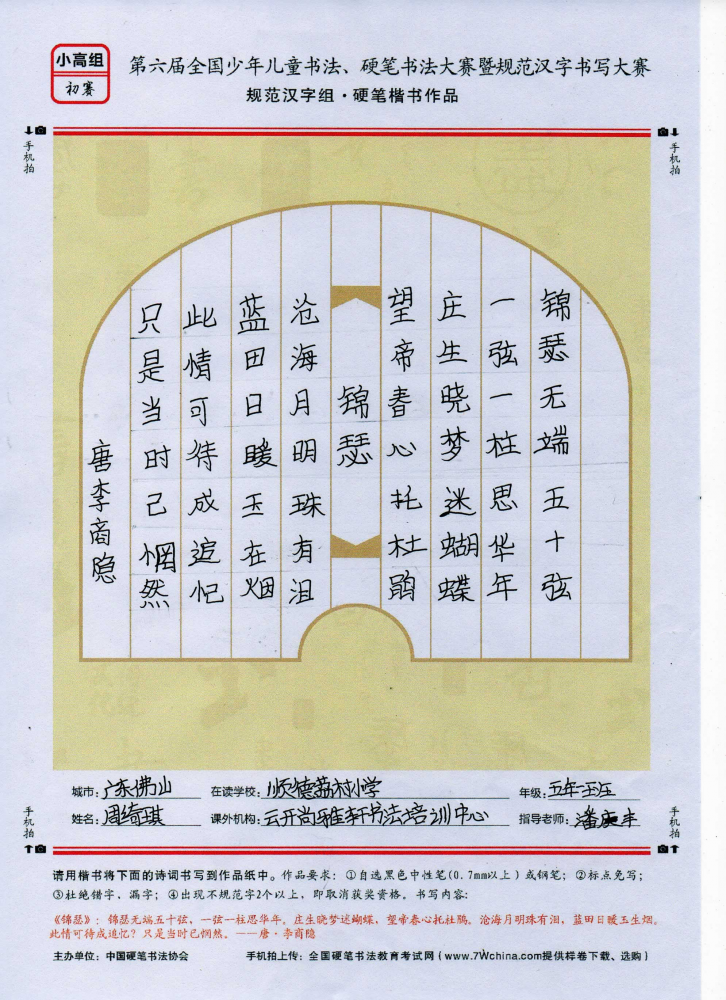 小高组
初赛
第六届全国少年儿童书法、硬笔书法大赛暨规范汉字书写大赛
规范汉字组·硬笔楷书作品
手机拍
手机拍
锦瑟无端五十弦
一弦一柱思华年
庄生晓梦迷蝴蝶
望帝春心托杜鹃
锦瑟
沧海月明珠有泪
蓝田日暖玉在烟
此情可待成追忆
只是当时已惘然
唐李商隐
城市：广东佛山 在读学校：顺德荔村小学 年级：五年
姓名：周绮琪 课外机构：云开尚雅轩书法培训中心 指导老师：潘庚丰
手机拍
手机拍
请用楷书将下面的诗词书写到作品纸中。作品要求：①自选黑色中性笔(0.7mm以上)或钢笔；②标点免写；
③杜绝错字、漏字；④出现不规范字2个以上，即取消获奖资格。书写内容：
《锦瑟》：锦瑟无端五十弦，一弦一柱思华年。庄生晓梦迷蝴蝶，望帝春心托杜鹃。沧海月明珠有泪，蓝田日暖玉生烟。
此情可待成追忆？只是当时已惘然。——唐·李商隐
主办单位：中国硬笔书法协会 手机拍上传：全国硬笔书法教育考试网（www.7Wchina.com提供样卷下载、选购）